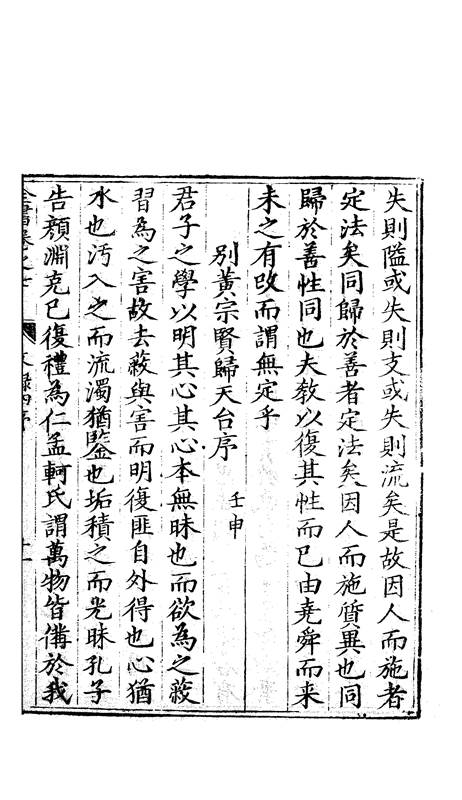 失則隘或失則支或失則流矣是故因人而施者
定法矣同歸於善者定法矣因人而施質異也同
歸於善性同也夫教以復其性而已由堯舜而来
未之有改而謂無定乎
別黃宗賢歸天台序 壬申
君子之學以明其心其心本無昧也而欲為之蔽
習為之害故去蔽與害而明復匪自外得也心猶
水也汚入之而流濁猶鑒也垢積之而光昧孔子
告顔淵克已復禮為仁孟軻氏謂萬物皆備於我
全書卷之七 文録四序 十一